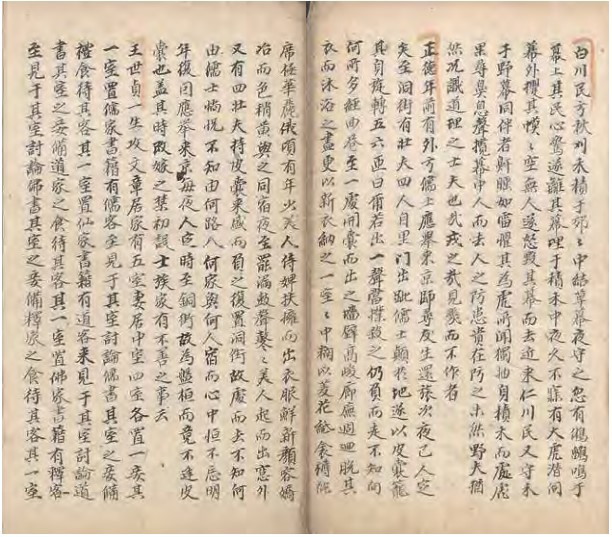 白川民方秋刈禾積于野野中結草幕夜守之忽有鵂鶹鳴于
幕上其民心驚遂離其幕埋于積禾中夜久不寐有大虎潛向
幕外攫其幕幕空無人遂怒毁其幕而去近來仁川民又守禾
于野幕同伴者鼾睡如雷懼其爲虎所聞獨抽身積禾而處虎
果尋鼻息聲攬幕中人而去人之防患貴在防之未然野夫猶
然况識道理之士夫也哉戎之哉見幾而不作者
正德年前有外方儒士應擧來京師尋友生還張次夜已人定
矣至洞街有壯夫四人自里門出
其身旋轉五六匝曰爾若出一聲當撲殺之仍負而走不知向
何所多經曲巷至一處開囊而出之墻壁高峻廊廡週迴脫其
衣而沐浴之盡更以新衣納之一室室中糊以菱花
席極華麗俄頃有年少美人侍婢扶擁而出衣服鮮新顔容嬌
冶而色稍黃與之同宿夜至罷漏鼓聲鼕鼕美人起而出窓外
又有四壯夫持皮囊來盛而負之復置洞街故處而去不知何
由儒士惝怳不知由何路入何家與何人宿而心中恒不忘明
年復因應擧來京每夜人定時至銅街故爲盤桓而竟不逢皮
囊也盖其時改嫁之禁初嚴士族家有不善之事云
王世貞一生攻文章居家有五室妻居中室四室各置一妾其
一室置儒家書籍有儒客至見于其室討論儒書其室之妾備
禮食待其客其一室置仙家書籍有道客來見于其室討論道
書其室之妾備道家之食待其客其一室置佛家書籍有釋客
至見于其室討論佛書其室之妾備釋家之食待其客其一室